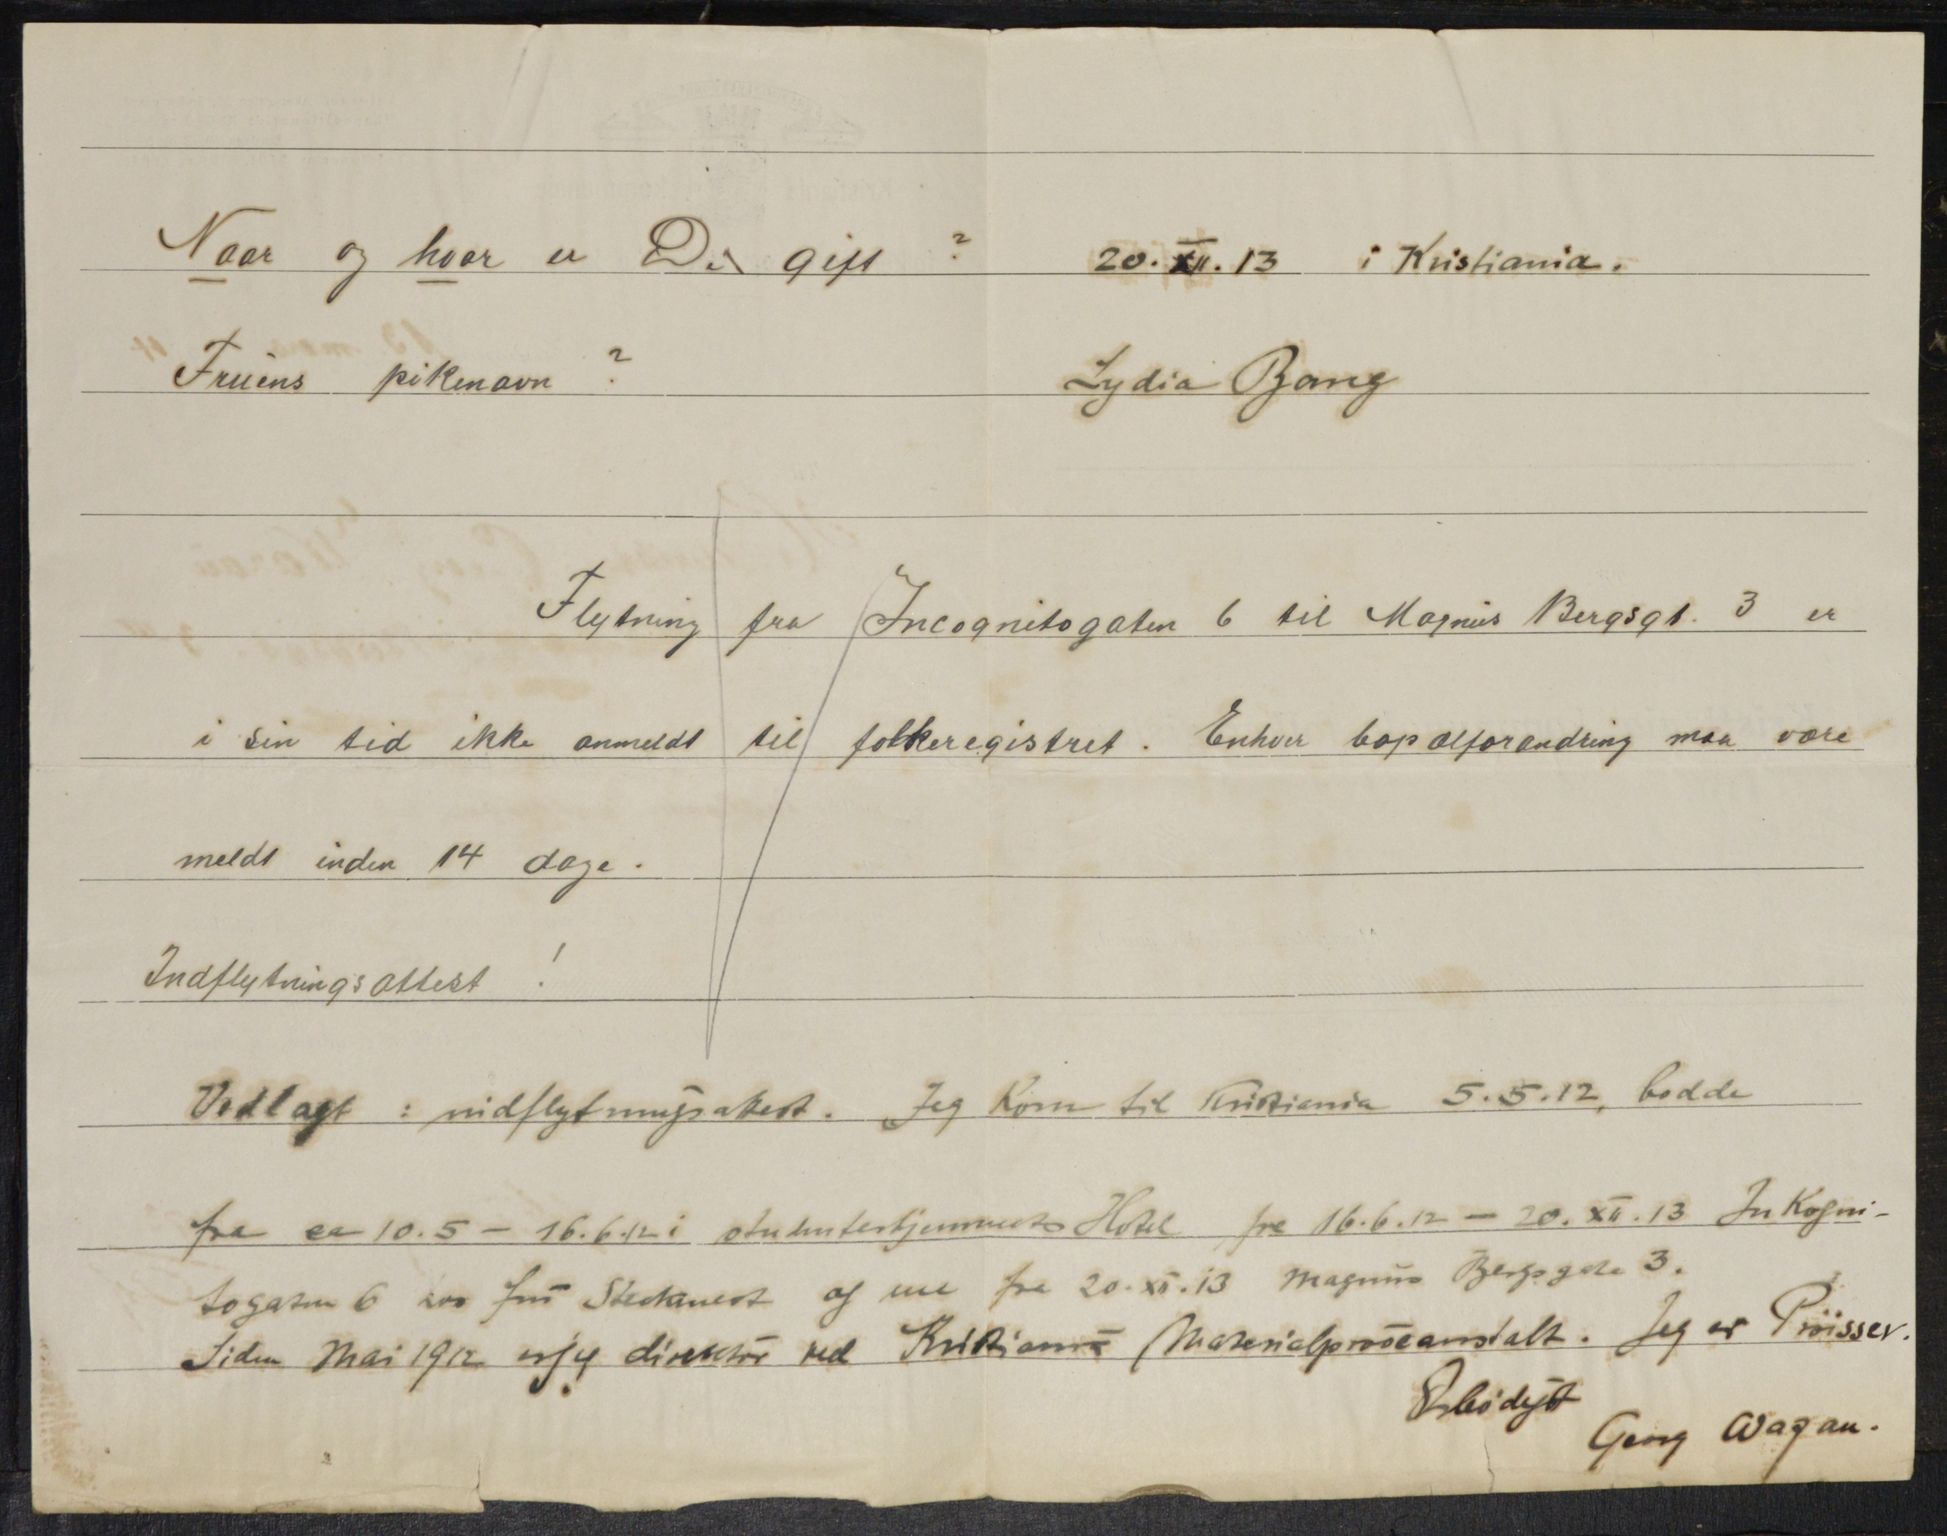 Naar og hvor er De gift ? 20. XII. 13 i Kristiania.
Fruens pikenavn ? Lydia Bang
Flytning fra Incognitogaten 6 til Magnus Bergsgt. 3 er
i sin tid ikke anmeldt til folkeregistret. Enhver bopælforandring maa være
meldt inden 14 dage.
Indflytningsattest !
Vedlagt : indflytningsattest. Jeg kom til Kristiania 5.5.12, bodde
fra ca 10.5 – 16.6.12 i studenterhjemmets Hotel fra 16.6.12 – 20. XII. 13 Inkogni-
togaten 6 hos fru og nu fra 20. XII. 13 Magnus Bergsgate 3.
Siden Mai 1912 er jeg direktör ved Kristiania Materialprøveanstalt. Jeg er Pröisser.
Ærbödigst
Georg